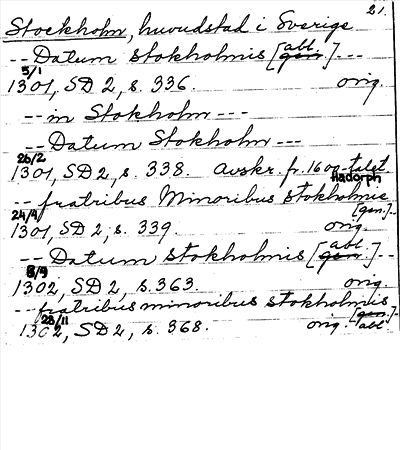 21.
Stockholm, huvudstad i Sverige
-- Datum stokholmis [gen. abl.] ---
5/1
1301, SD 2, s. 336. orig.
-- in Stokholm ---
-- Datum Stokholm ---
26/2
1301, SD 2, s. 338. Avskr. fr. 1600-talet.
Hadorph
-- fratribus Minoribus stokholmis
[gen.]--
24/4
1301, SD 2, s. 339. orig.
-- Datum stokholmis [gen. abl.] --
8/9
1302, SD 2, s. 363. orig.
-- fratribus minoribus stokholmis
[gen. abl.]--
28/11
1302, SD 2, s. 368. orig.